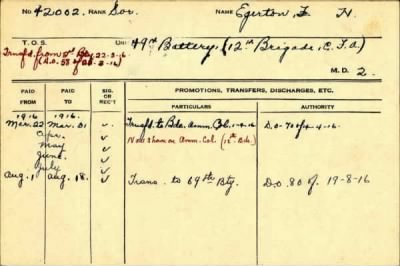 No. 42002. RANK Gnr. NAME Egerton, F H.
T. O. S. UNIT 49th Battery, (12th Brigade, C.F.A)
Transf'd from 5th Bty 22-3-16
(D.O. 58 of 22-3-16)
M. D. 2.
PAID FROM PAID TO SIG. OR REC'T PROMOTIONS, TRANSFERS, DISCHARGES, ETC.
PARTICULARS AUTHORITY
1916 1916.
Mar. 22 Mar. 31 ✓ Transf'd. to Bde. Amm. Col. 1-4-16 D.O. 70 of 4-4-16.
Apr. ✓ Now shown on Amm. Col. (12th Bde.)
May ✓
June ✓
July ✓
Aug. 1 Aug. 18. ✓ Trans. to 69th Bty. D.O. 80 of 19-8-16